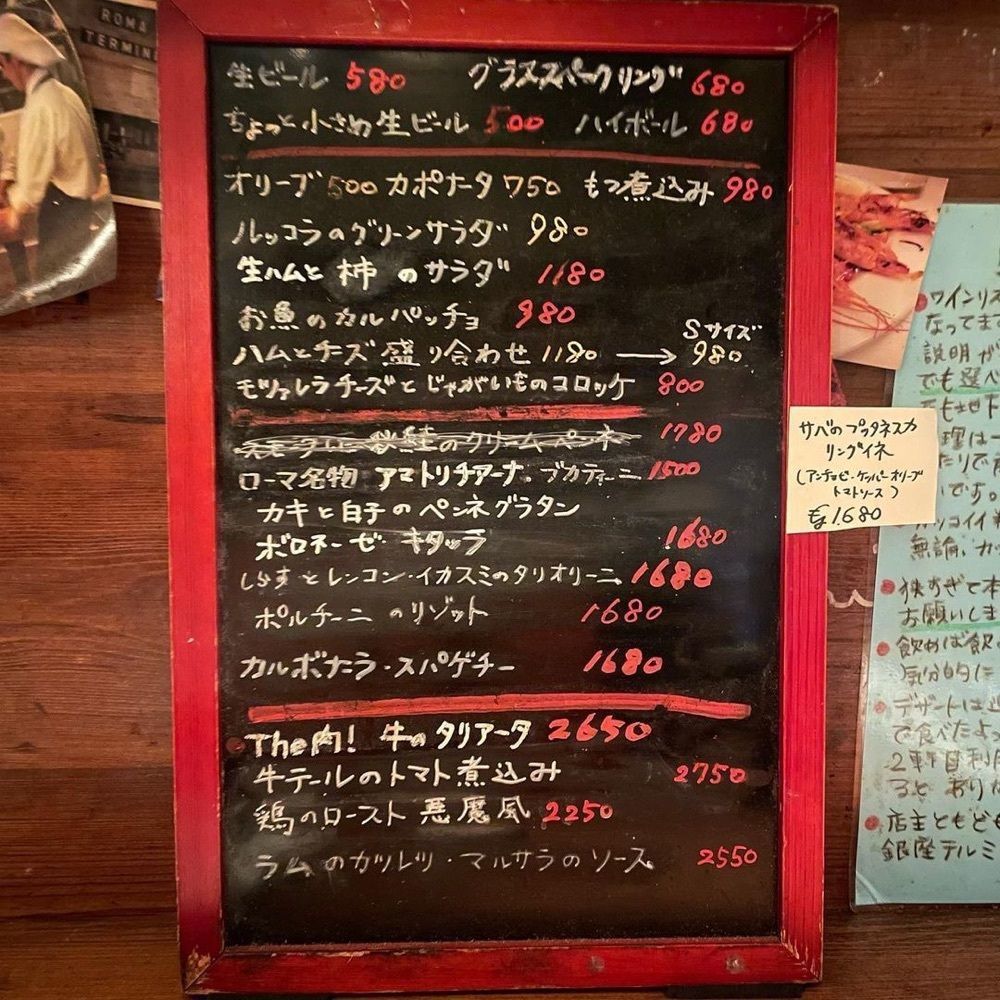 ROMA
TERMIN
生ビール 580 グラススパークリング 680
ちょっと小さめ生ビール 500 ハイボール 680
オリーブ 500 カポナータ 750 もつ煮込み 980
ルッコラのグリーンサラダ 980
生ハムと柿のサラダ 1180
お魚のカルパッチョ 980
Sサイズ
ハムとチーズ盛り合わせ 1180 → 980
モツァレラチーズとじゃがいものコロッケ 800
秋鮭のクリームペンネ 1780
ローマ名物 アマトリチアーナ、ブカティーニ 1500
カキと白子のペンネグラタン
ボロネーゼ キタッラ 1680
しらすとレンコン・イカスミのタリオリーニ 1680
ポルチーニのリゾット 1680
カルボナラ・スパゲチー 1680
The肉! 牛のタリアータ 2650
牛テールのトマト煮込み 2750
鶏のロースト 悪魔風 2250
ラムのカツレツ・マルサラのソース 2550
サバのプッタネスカ
リングイネ
(アンチョビ・ケッパーオリーブ
トマトソース)
1680
ワインリス
なってま
説明が
でも選べ
理は一
たりで
いです。
カッコイイ
無論、カ
狭すぎて本
お願いしま
飲めば飲
気分的に
デザートは
で食べたよ
2軒目利用
店主ともども
銀座テルミ